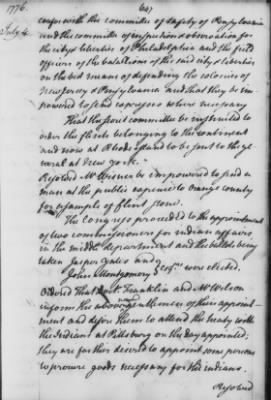 1776. (341)
July 4. confer with the committee of safety of Pensylvania
and the committee of inspection & observation for
the city & liberties of Philadelphia and the field
officers of the battalions of the said city & liberties
on the best means of defending the colonies of
new jersey & Pensylvania and that they be im-
powered to send expresses where necessary
That the secret committee be instructed to
order the flints belonging to the continent
and now at Rhode island to be sent to the ge
neral at New York.
Resolved Mr Wisner be impowered to send a
man at the public expence to Orange county
for a sample of flint stone.
The Congress proceeded to the appointment
of two commissioners for indian affairs
in the middle department and the ballots being
taken Jasper Yeates and
John Montgomery Esqrs. were elected.
Ordered That doct. Franklin and Mr Wilson
inform the above gentlemen of their appoint-
ment and desire them to attend the treaty with
the Indians at Pittsburg on the day appointed;
they are farther desired to appoint some persons
to procure goods necessary for the indians.
Resolved